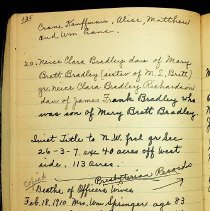 Crane Kauffman, Alice, Matthew
and Wm Crane.
20. Neice Clara Bradley daw of Mary
Brett Bradley (sister of M. I. Brett)
gr. neice Clara Bradley Richardson
daw of James Frank Bradley who
was son of Mary Brett Bradley.
Quiet Title to N.W. frcl qr Sec
26-3-7. exc 40 acres off west
side, 113 acres.
Presbyterian Records
Deaths of Officers Wives
Feb. 18, 1910 Mrs. Wm Springer age 83